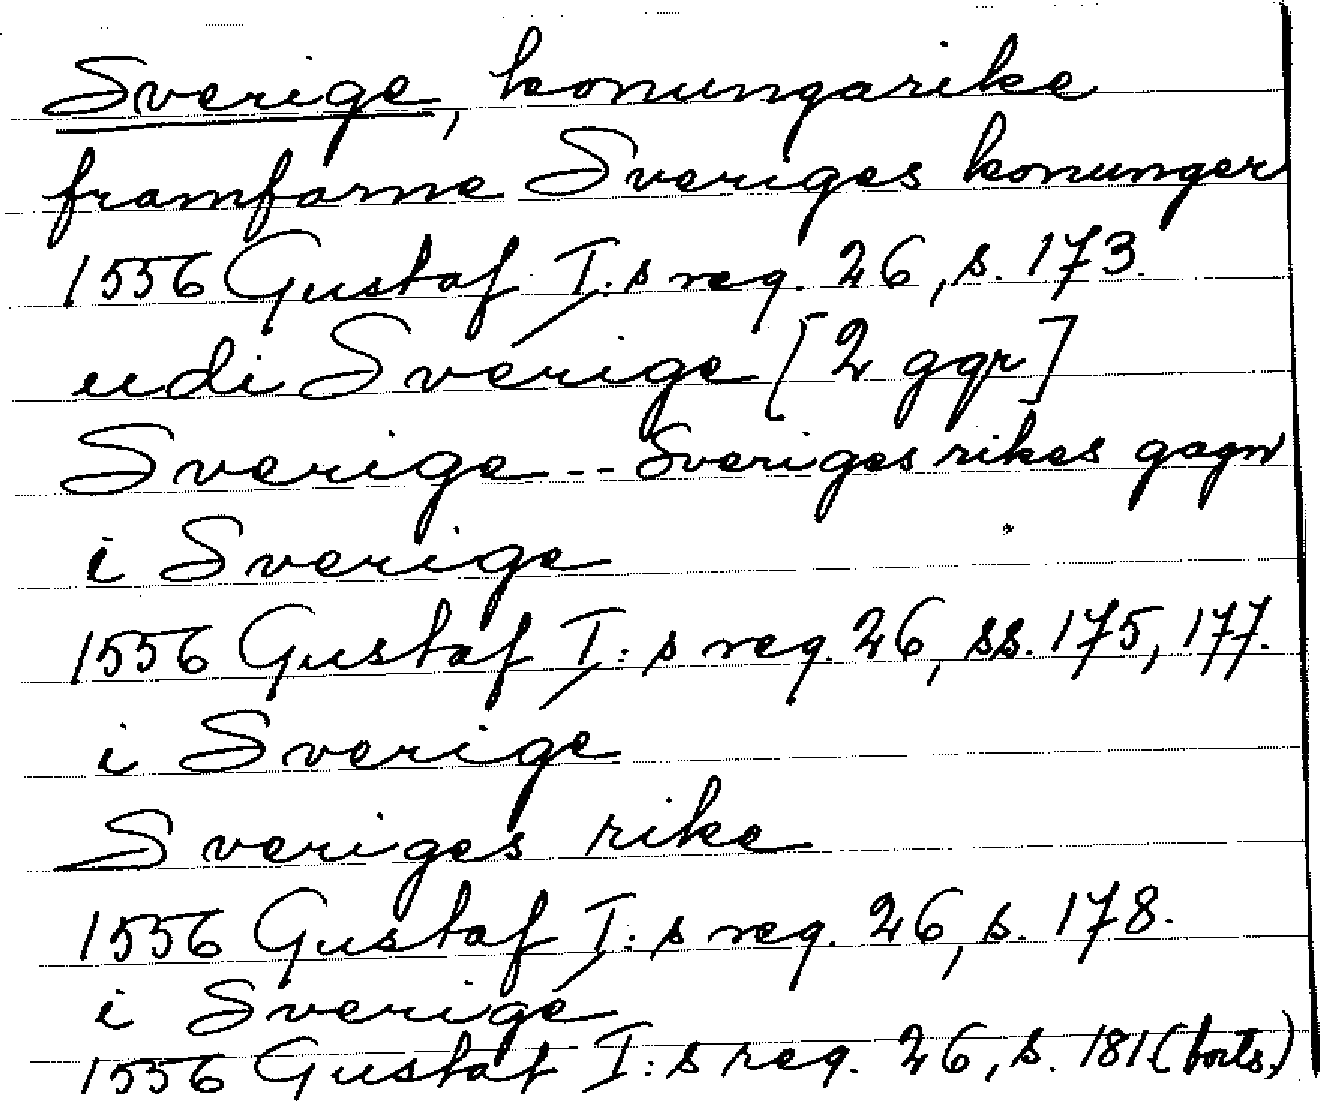 Sverige, konungarike
framfarne Sveriges konunger
1556 Gustaf I:s reg. 26, s. 173.
udi Sverige [2 ggr]
Sverige -- Sveriges rikes gagn
i Sverige
1556 Gustaf I:s reg. 26, ss. 175, 177.
i Sverige
Sveriges rike
1556 Gustaf I:s reg. 26, s. 178.
i Sverige
1556 Gustaf I:s reg. 26, s. 181 (forts.)